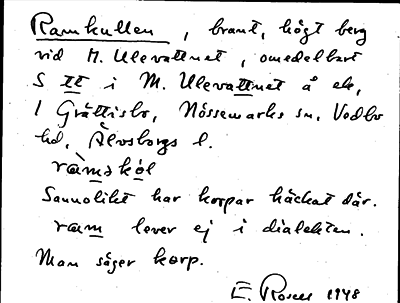 Ramkullen, brant, högt berg
vid M. Ulevattnet, omedelbart
S tt i M. Ulevattnet å ek,
1 Gråttisbo, Nössemarks sn, Vedbo
hd, Älvsborgs l.
ràmskól
Sannolikt har korpar häckat där.
ram lever ej i dialekten.
Man säger korp.
E. Rosell 1948